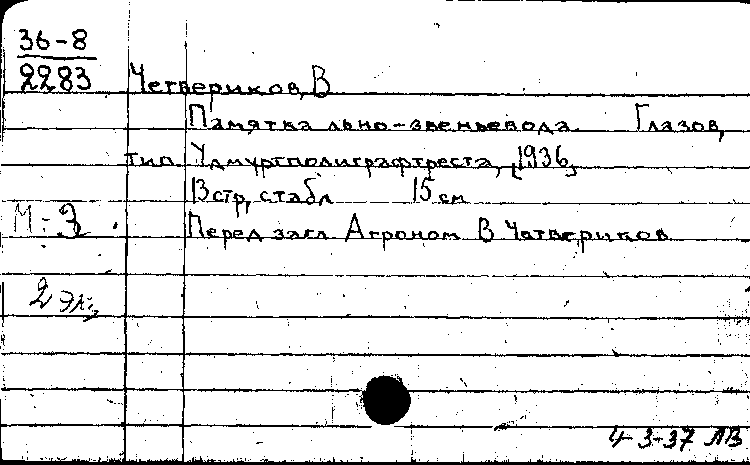 36-8
2283 Четвериков, В
Памятка льно-звеньевода. Глазов,
тип. Удмуртполиграфтреста, [1936]
13 стр, с табл 15 см
М-3.
Перед загл Агроном В Четвериков
2 эк.
4-3-37 ЛВ